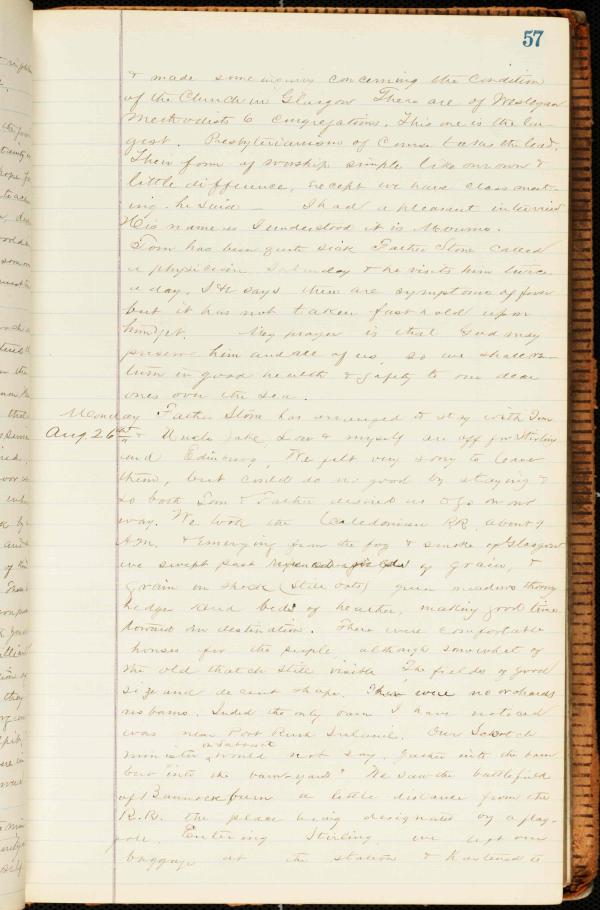 57
& made some inquiry concerning the condition
of the Church in Glasgow There are of Wesleyan
Methodists 6 congregations. This one is the lar-
gest. Presbyterianism of course takes the lead.
Their form of worship simple like our own &
little difference, except we have class meet-
ing he said — I had a pleasant interview
His name as I understood it is
Tom has been quite sick Father Stone called
a physician Saturday & he visits him twice
a day. He says there are symptoms of fever
but it has not taken fast hold upon
him yet. My prayer is that God may
preserve him and all of us, so we shall re-
turn in good health & safety to our dear
ones over the sea.
Monday Father Stone has arranged to stay with Tom
Aug. 26th & Uncle Jake, Lou & myself are off for Stirling
and Edinburg, We felt very sorry to leave
them, but could do no good by staying &
so both Tom & Father desired us to go on our
way. We took the Caledonian RR. about 9
A.M. & Emerging from the fog & smoke of Glasgow
we swept past fields of grain, &
grain in shock (still oats) green meadows thorny
hedges and beds of heather, making good time
toward our destination. There were comfortable
houses for the people although somewhat of
the old thatch still visible The fields of good
size and decent shape. There were no orchards
no barns. Indeed the only barn I have noticed
was near Port Rush Ireland. Our Scotch
minister on Sabbath would not say, gather into the barn
but "into the barn-yards" We saw the battlefield
of Bannockburn a little distance from the
R.R. the place being designated by a flag-
pole. Entering Stirling we left our
baggage at the station & hastened to